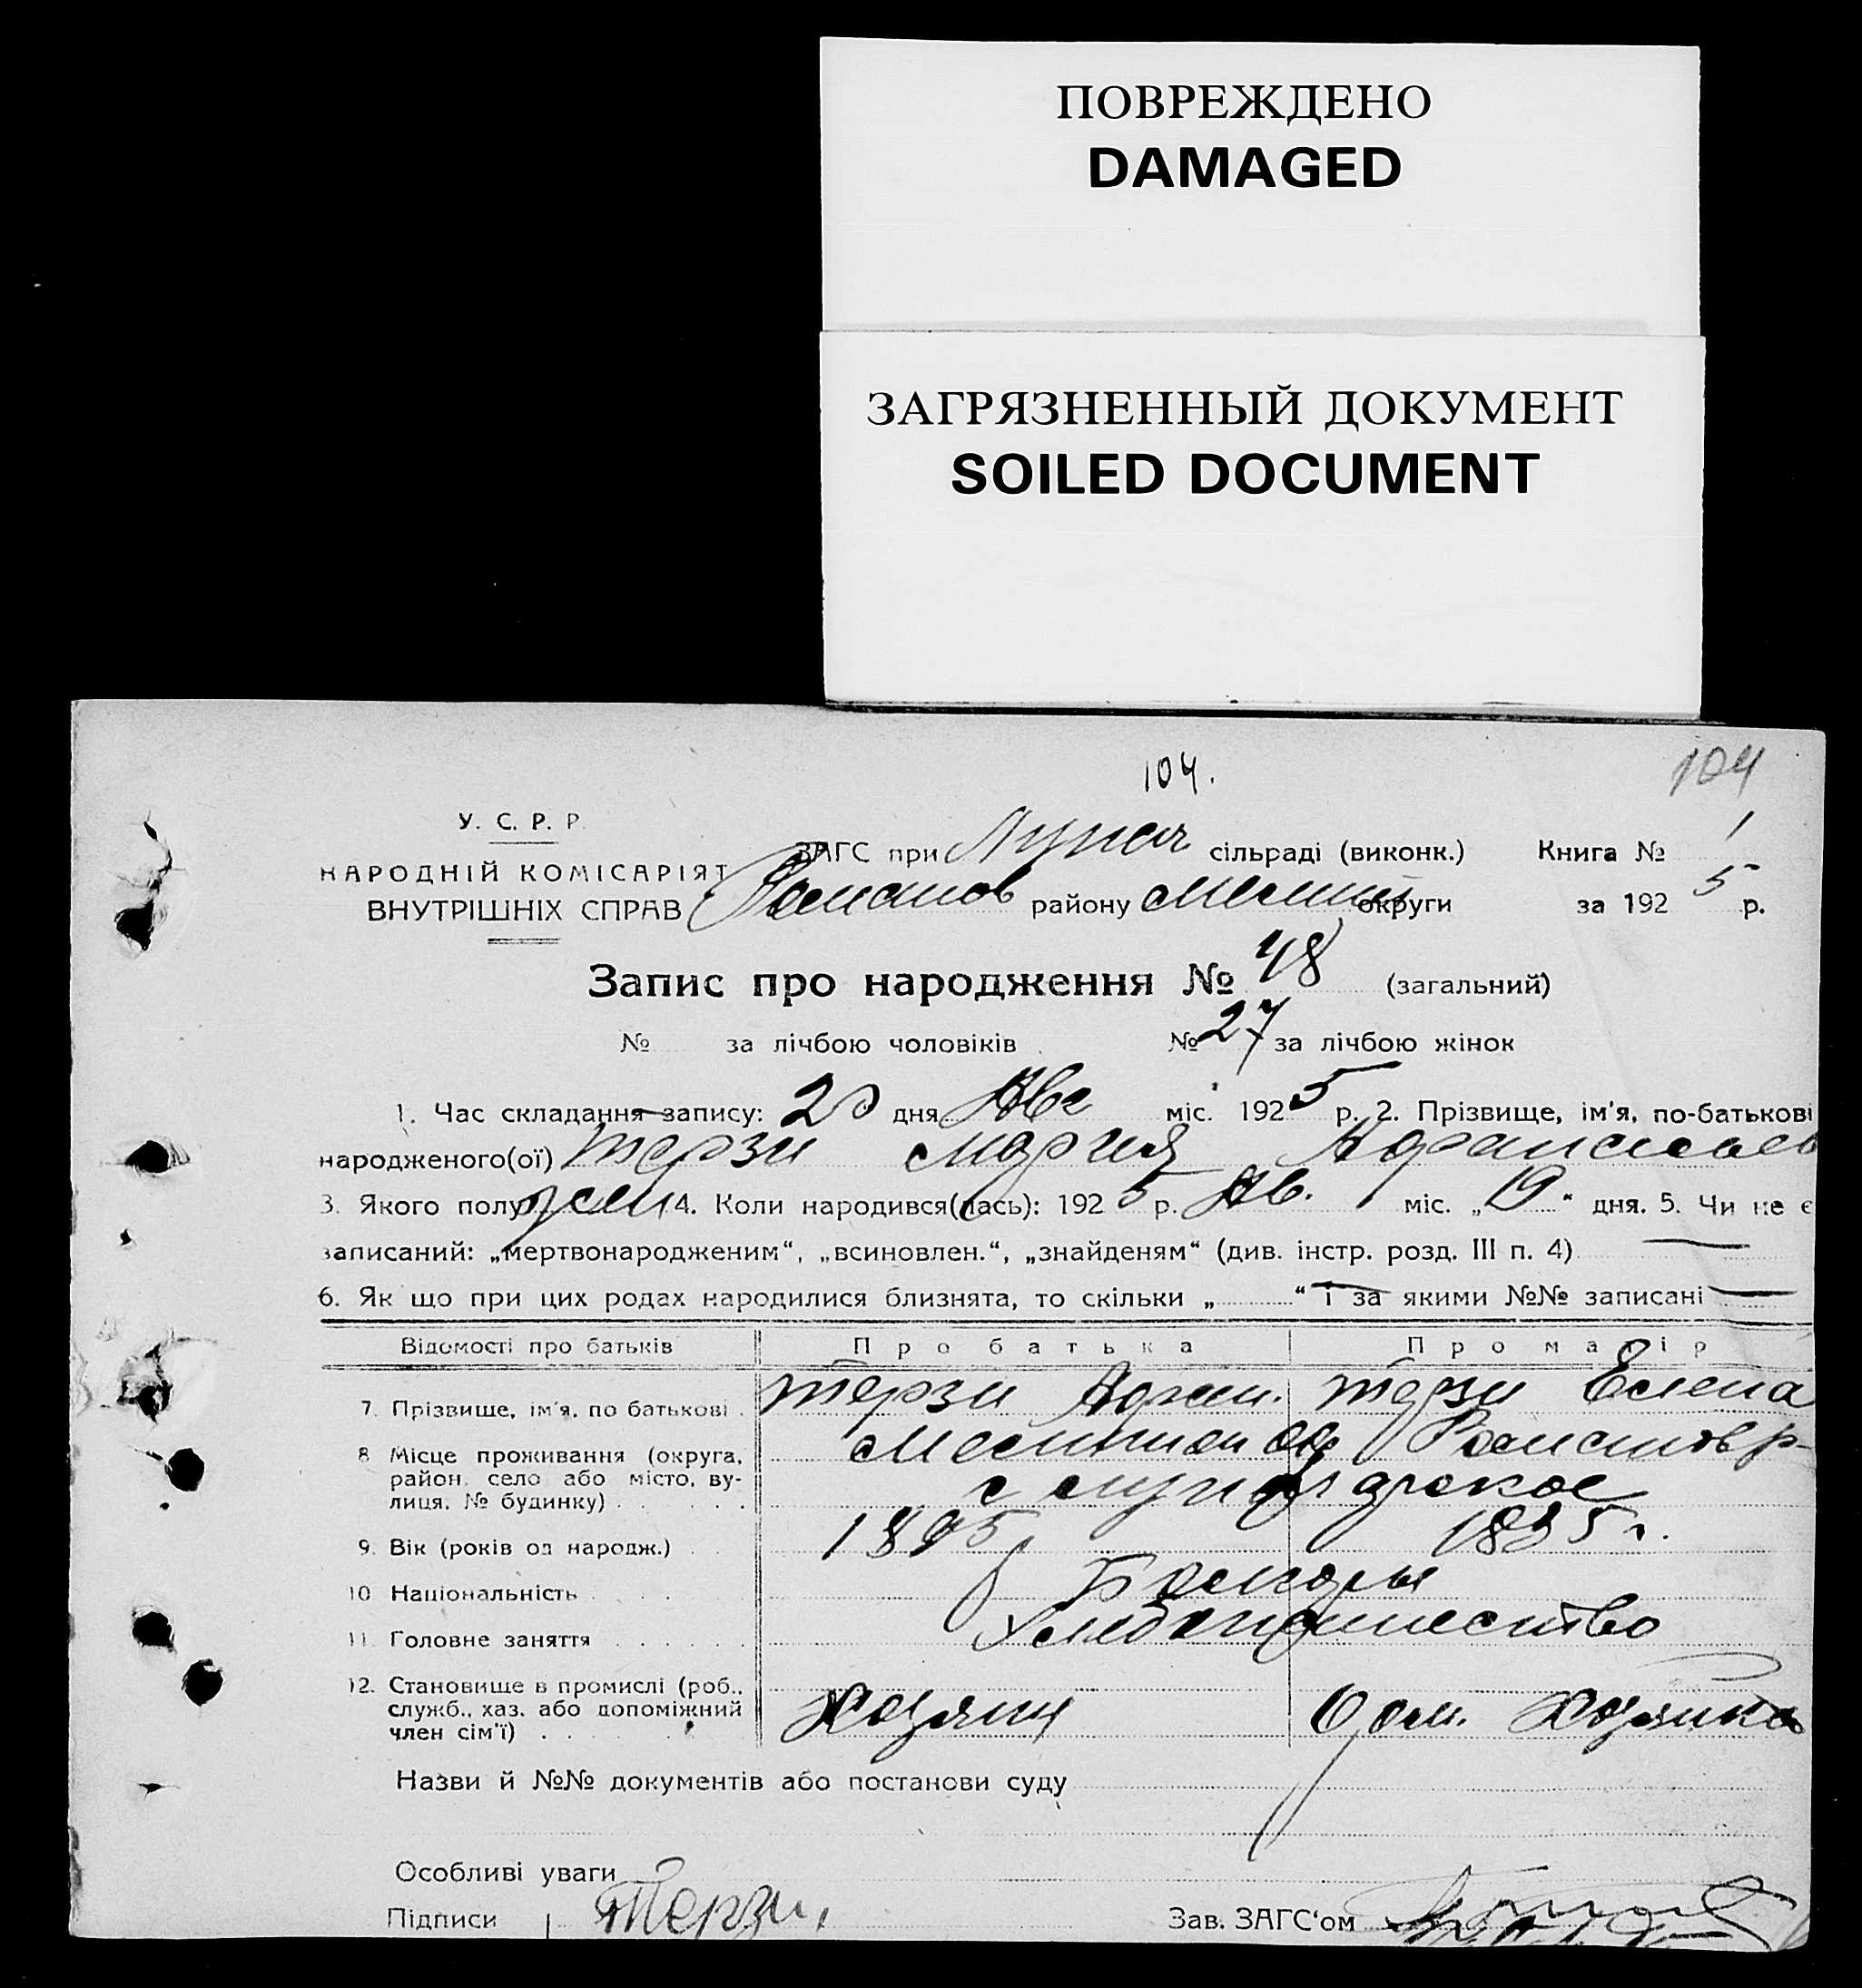 ПОВРЕЖДЕНО
DAMAGED
ЗАГРЯЗНЕННЫЙ ДОКУМЕНТ
SOILED DOCUMENT
104.
104
У. С. Р. Р.
НАРОДНІЙ КОМІСАРІЯТ
ВНУТРІШНІХ СПРАВ
ЗАГС при сільраді (виконк.) Книга № 1
району округи за 1925 р.
Запис про народження № 48 (загальний)
№ за лічбою чоловіків № 27 за лічбою жінок
1. Час складання запису: 20 дня Авг міс. 1925 р. 2. Прізвище, ім'я, по-батькові
народженого(ої) Терзи Мария
3. Якого полу жен 4. Коли народився(лась): 1925 р. Ав. міс. „19“ дня. 5. Чи не є
записаний: „мертвонародженим“, „всиновлен.“, „знайденям“ (див. інстр. розд. III п. 4)
6. Як що при цих родах народилися близнята, то скільки „ “ і за якими №№ записані
Відомості про батьків Про батька Про матір
7. Прізвище, ім'я, по батькові Терзи Терзи Елена
8 Місце проживання (округа,
район, село або місто, ву-
лиця, № будинку)
9. Вік (років од народж.) 1895 1895 г.
10 Національність
11. Головне заняття Хлебопашество
12. Становище в промислі (роб.,
служб., хаз. або допоміжний
член сім'ї) Хозяин Дом. Хозяйка
Назви й №№ документів або постанови суду
Особливі уваги
Підписи Терзи Зав. ЗАГС'ом